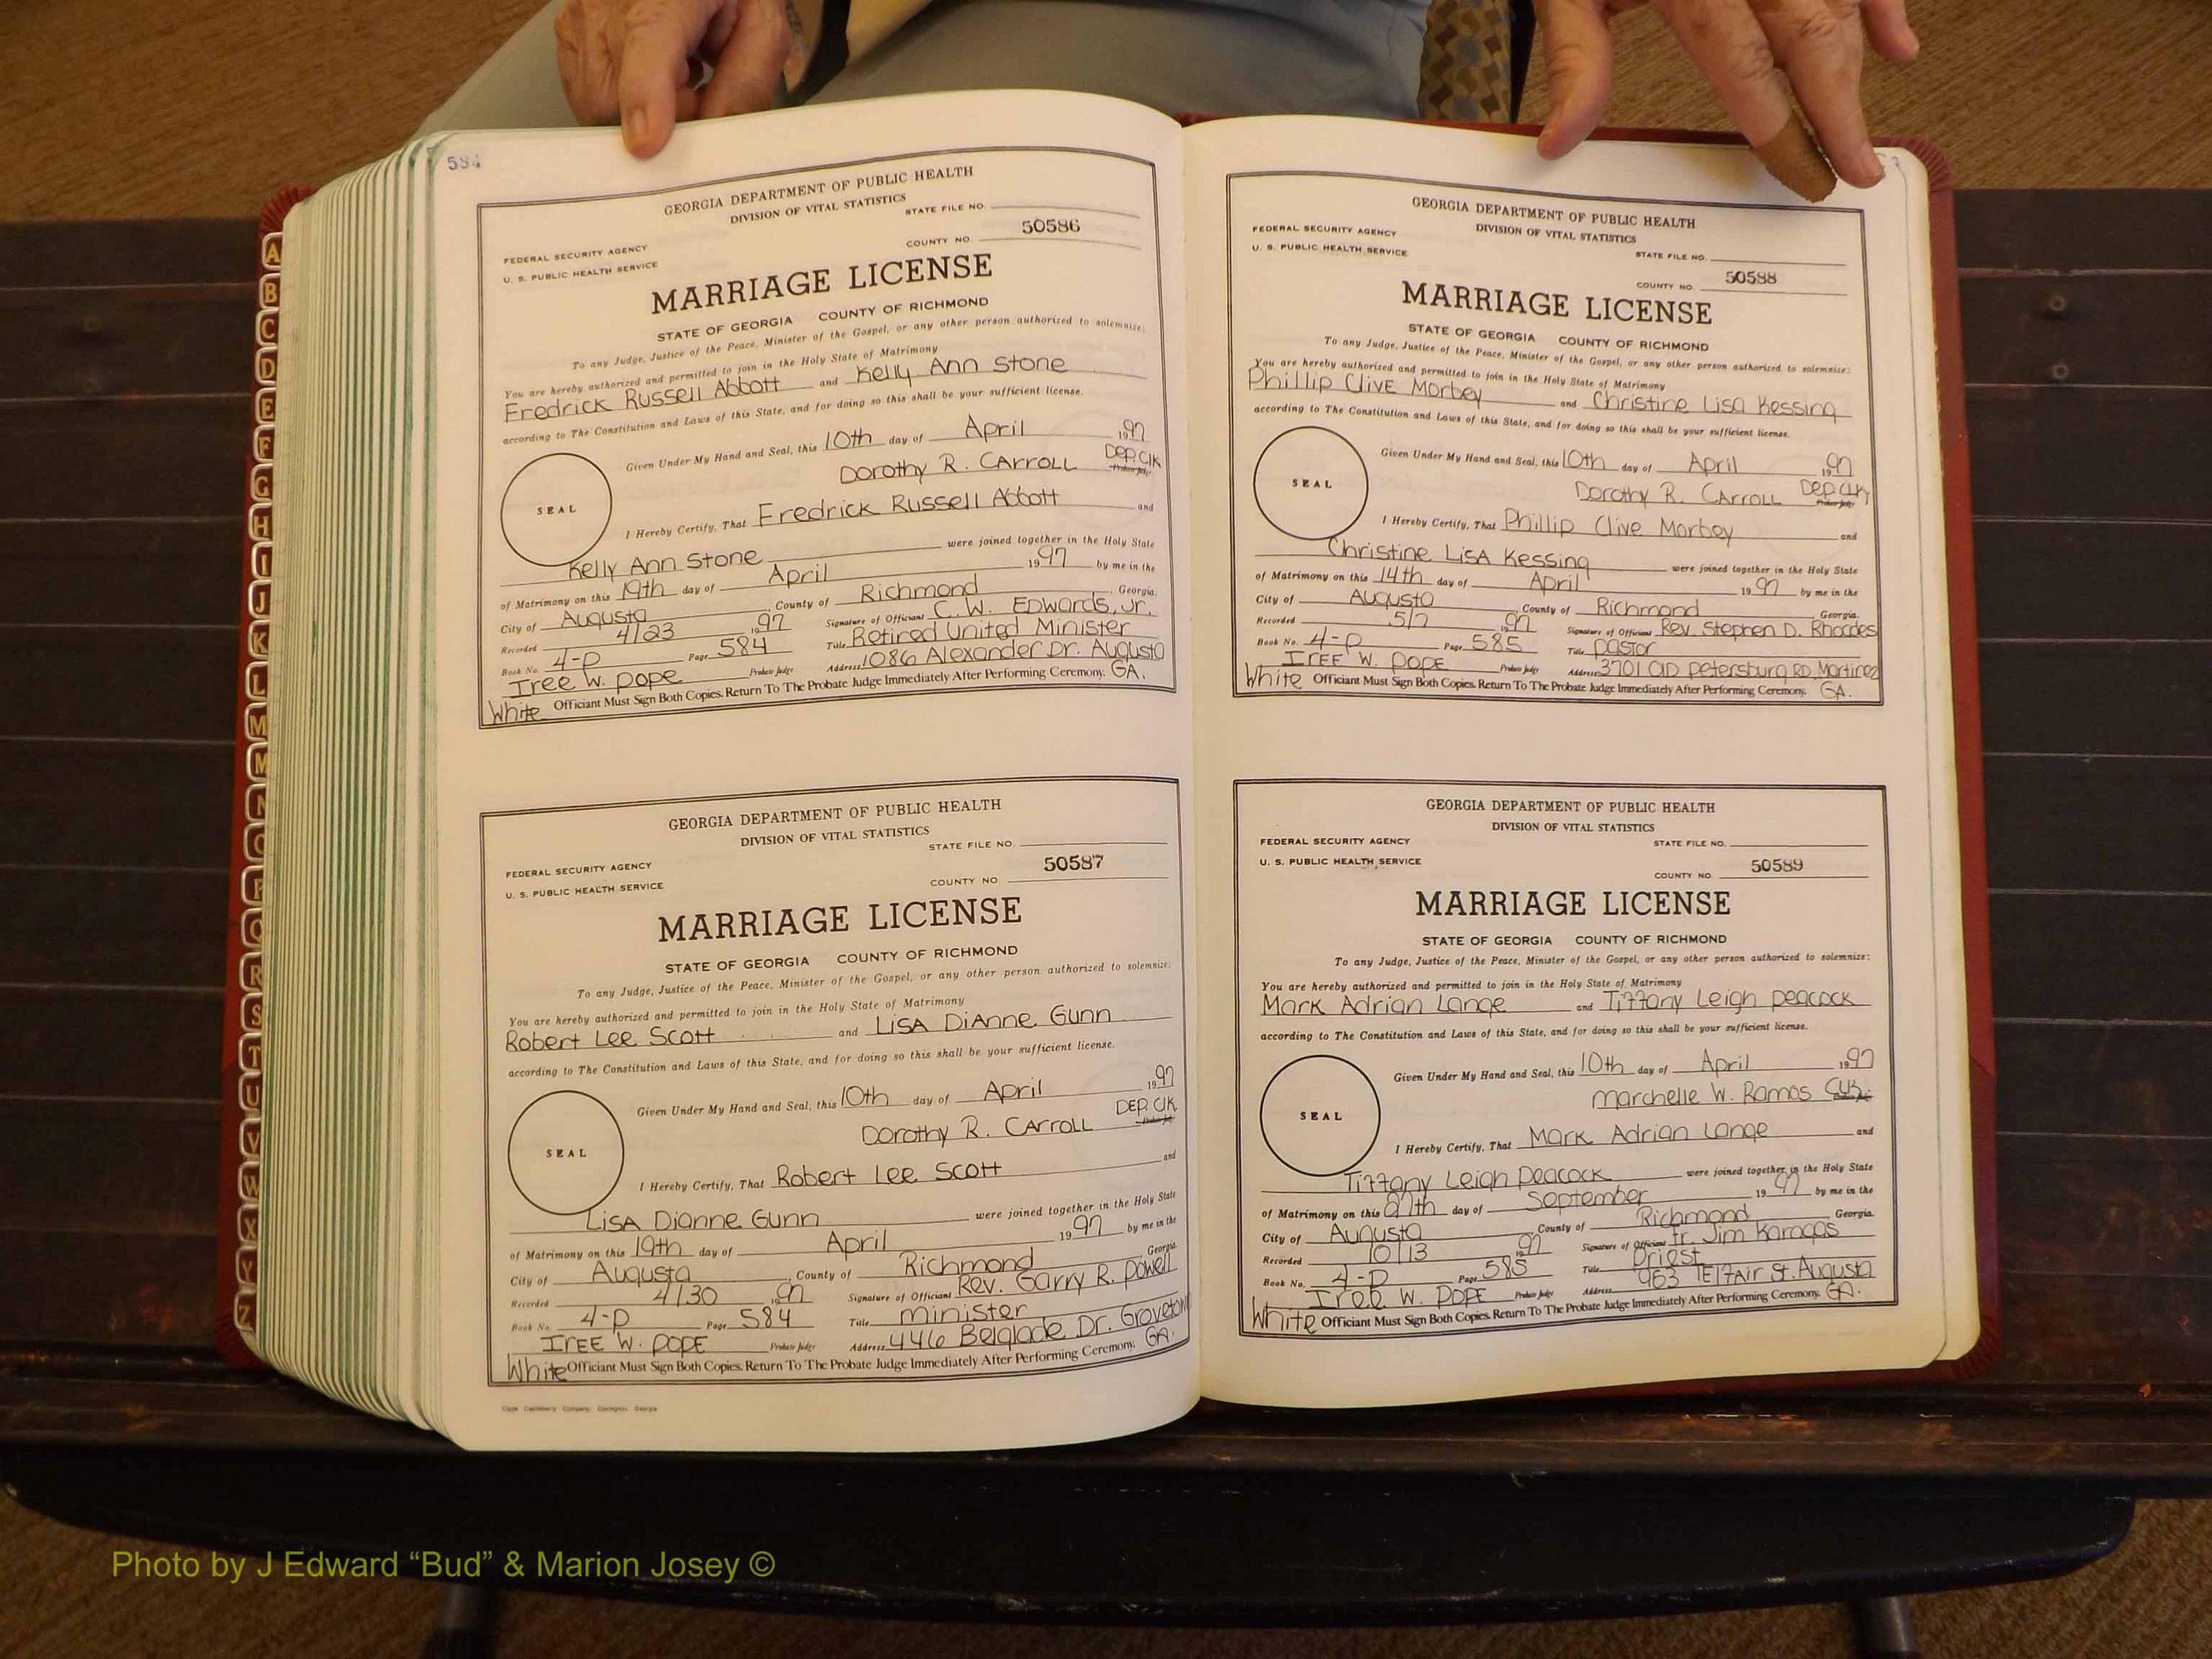 584
GEORGIA DEPARTMENT OF PUBLIC HEALTH
DIVISION OF VITAL STATISTICS
STATE FILE NO.
50586
FEDERAL SECURITY AGENCY
COUNTY NO.
U. S. PUBLIC HEALTH SERVICE
MARRIAGE LICENSE
STATE OF GEORGIA COUNTY OF RICHMOND
To any Judge, Justice of the Peace, Minister of the Gospel, or any other person authorized to solemnize:
You are hereby authorized and permitted to join in the Holy State of Matrimony
Fredrick Russell Abbott and Kelly Ann Stone
according to The Constitution and Laws of this State, and for doing so this shall be your sufficient license.
Given Under My Hand and Seal, this 10th day of April 1997
Dorothy R. Carroll Dep. Clk
Probate Judge
SEAL
I Hereby Certify, That Fredrick Russell Abbott and
Kelly Ann Stone were joined together in the Holy State
of Matrimony on this 19th day of April 1997 by me in the
City of Augusta, County of Richmond, Georgia.
Recorded 4/23 1997 Signature of Officiant C. W. Edwards, Jr.
Book No. 4-P Page 584 Title Retired United Minister
Iree W. Pope Probate Judge Address 1086 Alexander Dr. Augusta
GA.
White Officiant Must Sign Both Copies. Return To The Probate Judge Immediately After Performing Ceremony.
GEORGIA DEPARTMENT OF PUBLIC HEALTH
DIVISION OF VITAL STATISTICS
STATE FILE NO.
50587
FEDERAL SECURITY AGENCY
COUNTY NO.
U. S. PUBLIC HEALTH SERVICE
MARRIAGE LICENSE
STATE OF GEORGIA COUNTY OF RICHMOND
To any Judge, Justice of the Peace, Minister of the Gospel, or any other person authorized to solemnize:
You are hereby authorized and permitted to join in the Holy State of Matrimony
Robert Lee Scott and Lisa Dianne Gunn
according to The Constitution and Laws of this State, and for doing so this shall be your sufficient license.
Given Under My Hand and Seal, this 10th day of April 1997
Dorothy R. Carroll Dep. Clk
Probate Judge
SEAL
I Hereby Certify, That Robert Lee Scott and
Lisa Dianne Gunn were joined together in the Holy State
of Matrimony on this 19th day of April 1997 by me in the
City of Augusta, County of Richmond, Georgia.
Recorded 4/30 1997 Signature of Officiant Rev. Garry R. Powell
Book No. 4-P Page 584 Title Minister
Iree W. Pope Probate Judge Address 446 Belglade Dr. Grovetown
GA.
White Officiant Must Sign Both Copies. Return To The Probate Judge Immediately After Performing Ceremony.
GEORGIA DEPARTMENT OF PUBLIC HEALTH
DIVISION OF VITAL STATISTICS
FEDERAL SECURITY AGENCY
U. S. PUBLIC HEALTH SERVICE
STATE FILE NO.
50588
COUNTY NO.
MARRIAGE LICENSE
STATE OF GEORGIA COUNTY OF RICHMOND
To any Judge, Justice of the Peace, Minister of the Gospel, or any other person authorized to solemnize:
You are hereby authorized and permitted to join in the Holy State of Matrimony
Phillip Clive Morbey and Christine Lisa Kessing
according to The Constitution and Laws of this State, and for doing so this shall be your sufficient license.
Given Under My Hand and Seal, this 10th day of April 1997
Dorothy R. Carroll Dep. Clk
Probate Judge
SEAL
I Hereby Certify, That Phillip Clive Morbey and
Christine Lisa Kessing were joined together in the Holy State
of Matrimony on this 14th day of April 1997 by me in the
City of Augusta, County of Richmond Georgia.
Recorded 5/7 1997 Signature of Officiant Rev. Stephen D. Rhodes
Book No. 4-P Page 585 Title Pastor
Iree W. Pope Probate Judge Address 3701 Old Petersburg Rd. Martinez
GA.
White Officiant Must Sign Both Copies. Return To The Probate Judge Immediately After Performing Ceremony.
GEORGIA DEPARTMENT OF PUBLIC HEALTH
DIVISION OF VITAL STATISTICS
FEDERAL SECURITY AGENCY
STATE FILE NO.
U. S. PUBLIC HEALTH SERVICE
50589
COUNTY NO.
MARRIAGE LICENSE
STATE OF GEORGIA COUNTY OF RICHMOND
To any Judge, Justice of the Peace, Minister of the Gospel, or any other person authorized to solemnize:
You are hereby authorized and permitted to join in the Holy State of Matrimony
Mark Adrian Lange and Tiffany Leigh Peacock
according to The Constitution and Laws of this State, and for doing so this shall be your sufficient license.
Given Under My Hand and Seal, this 10th day of April 1997
Marchelle W. Ramos Clk.
SEAL
I Hereby Certify, That Mark Adrian Lange and
Tiffany Leigh Peacock were joined together in the Holy State
of Matrimony on this 27th day of September 1997 by me in the
City of Augusta County of Richmond Georgia.
Recorded 10/13 1997 Signature of Officiant Fr. Jim Karagas
Book No. 4-P Page 585 Title Priest
Iree W. Pope Probate Judge Address 953 Telfair St. Augusta
GA.
White Officiant Must Sign Both Copies. Return To The Probate Judge Immediately After Performing Ceremony.
A
B
C
D
E
F
G
H
I
J
K
L
M
M
N
O
P
Q
R
S
T
U
V
W
X
Y
Z
Photo by J Edward “Bud” & Marion Josey ©